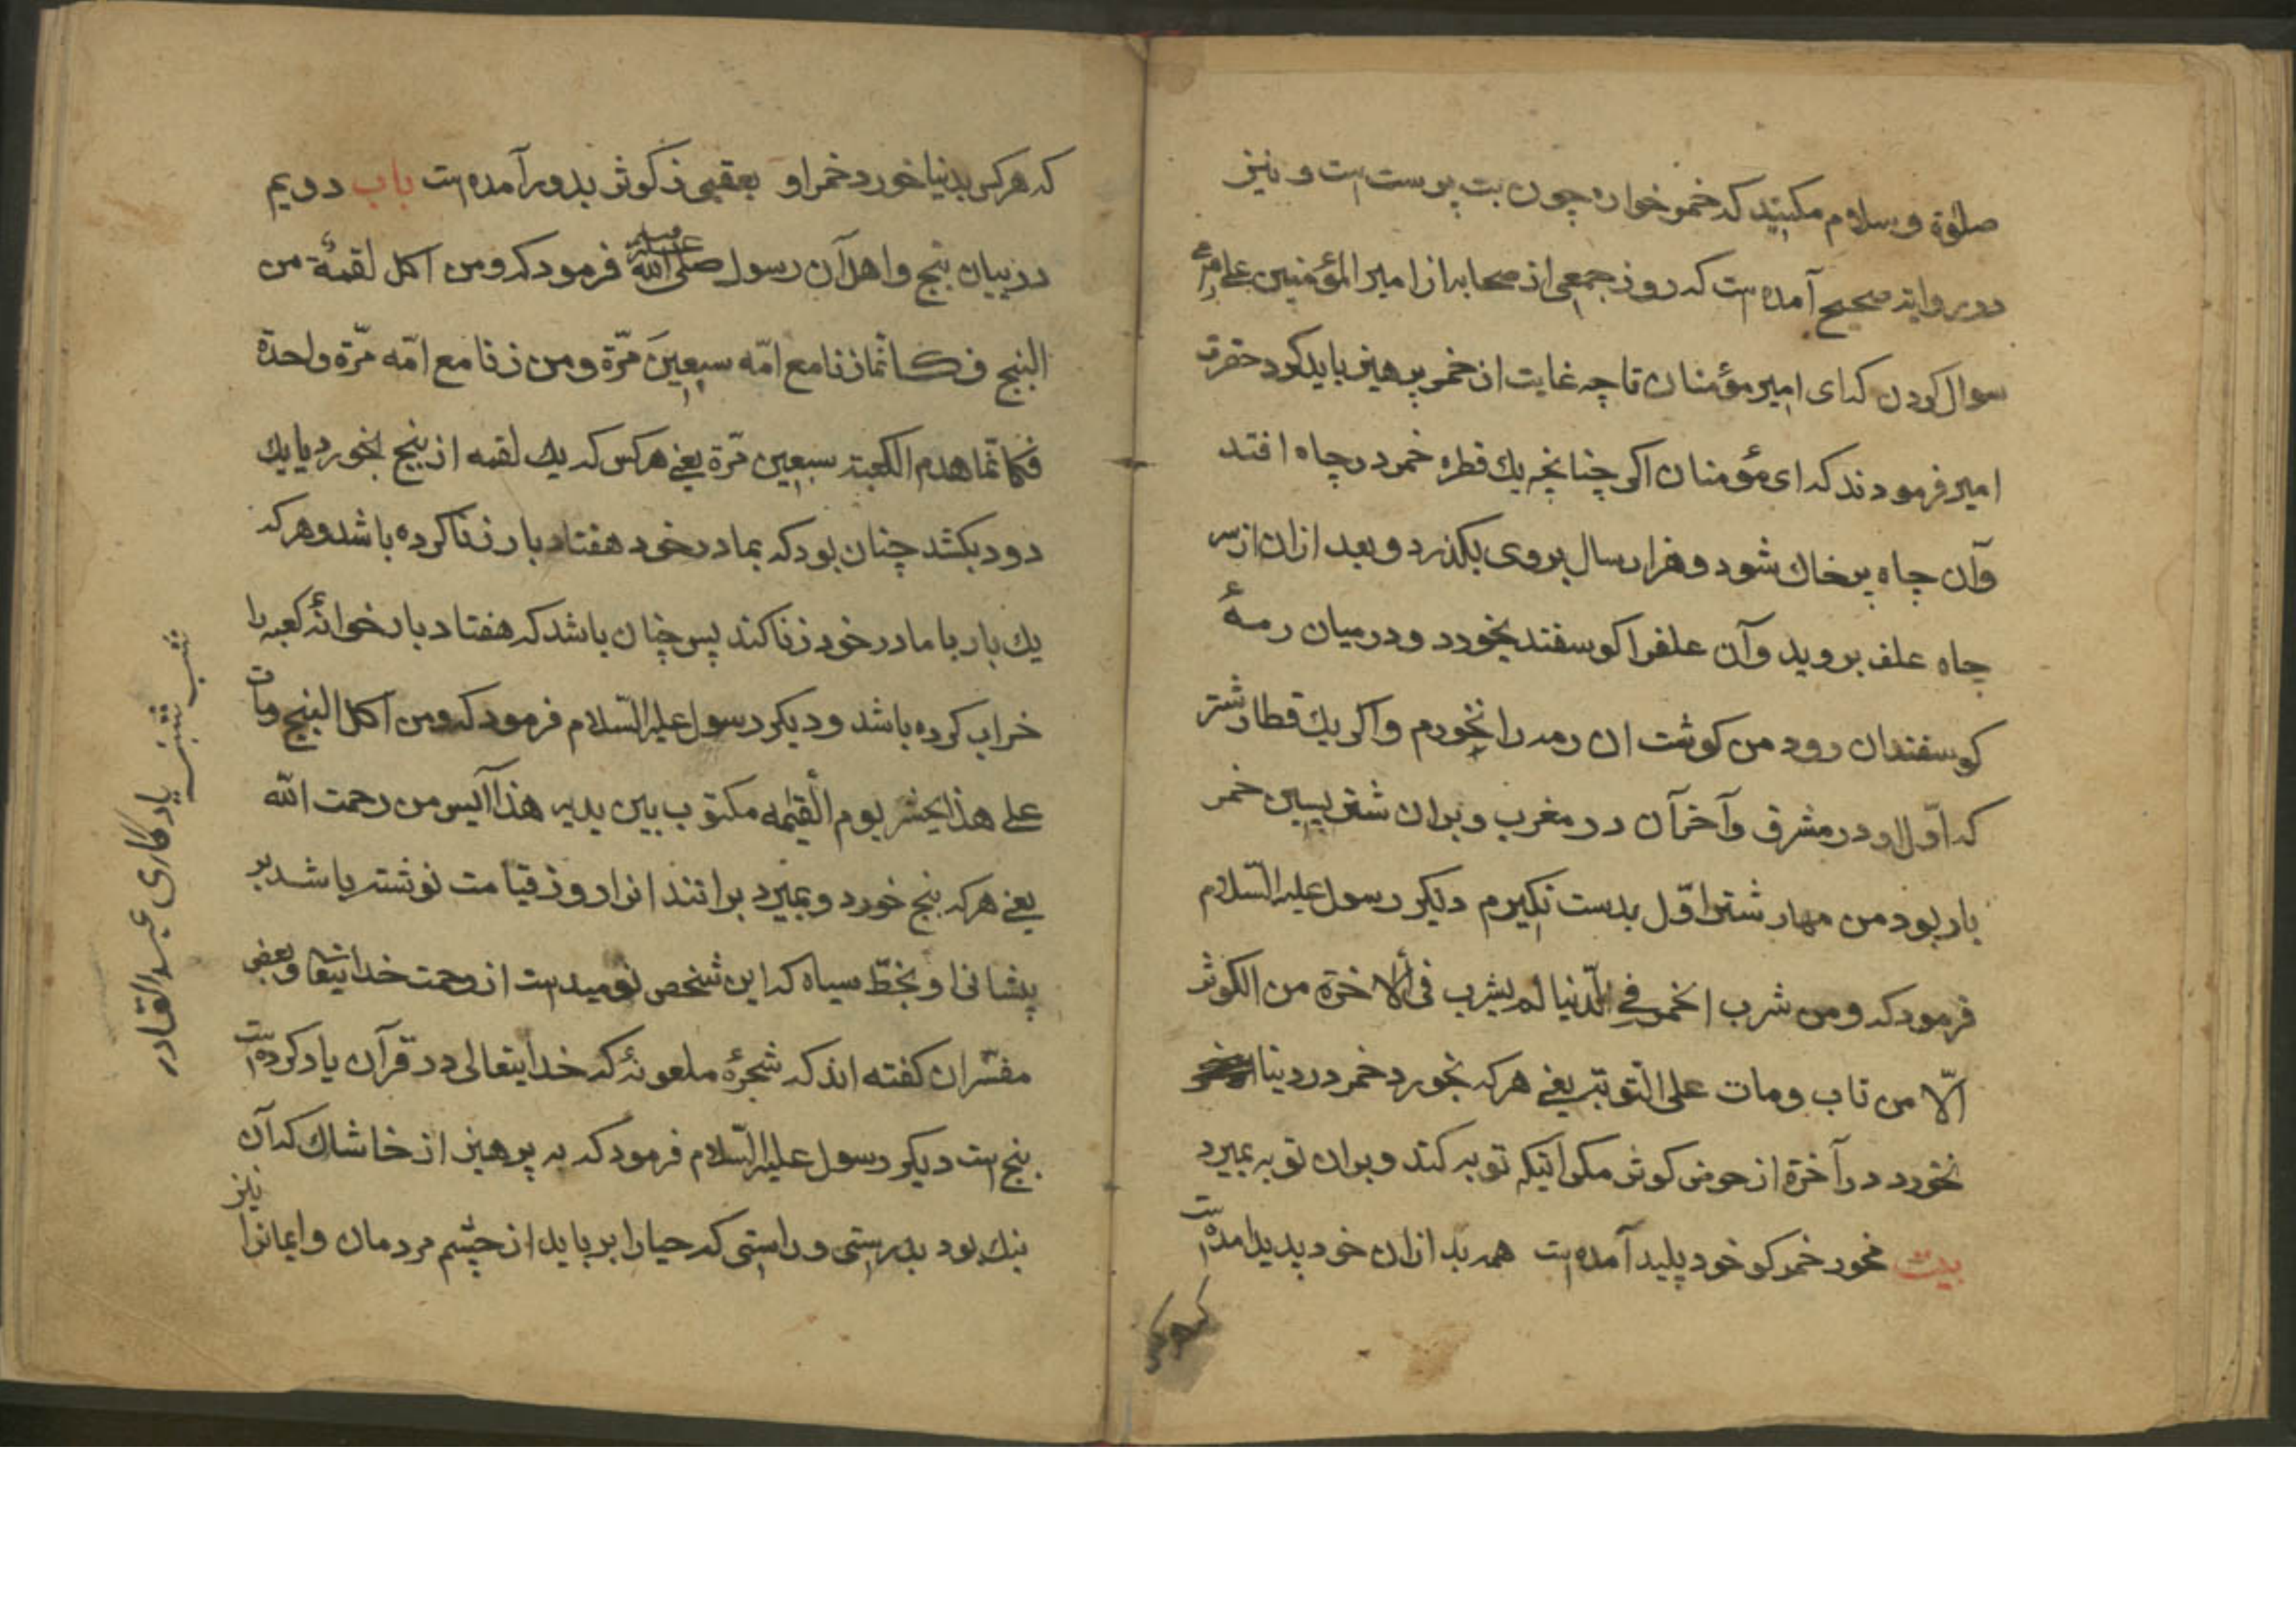 صلوة و سلام مکنید که خمر خواره چون بت پرست است و نیز
در روایة صحیح آمده است که روز جمعی از صحابه از امیر المؤمنین علی
سوال کردن که ای امیر مؤمنان تا چه غایت از خمر پرهیز باید کرد حضرت
امیر فرمودند که ای مؤمنان اکر چنانچه یك قطره خمر در چاه افتد
وآن چاه پر خاك شود و هزار سال بروی بکذرد و بعد ازان از سر
چاه علف بروید وآن علف را کوسفند بخورد و در میان رمهٔ
کوسفندان رود من کوشت ان رمه را نخورم واکر یك قطار شتر
که اوّل او در مشرق وآخر آن در مغرب و بران شتر پسین خمر
بار بود من مهار شتر اوّل بدست نکیرم دیکر رسول علیه السّلام
فرمود که ومن شرب الخمر فی الدّنیا لم یشرب فی ألاخرة من الکوثر
الّا من تاب ومات علی التّوبة یعنی هرکه بخورد خمر در دنیا
نخورد در آخرة از حوض کوثر مکر انیکه توبه کند و بران توبه بمیرد
بیت مخور خمر کو خود پلید آمده است همه بد ازان خود پدید امده است
که هر کس بدنیا خورد خمر او بعقبی ز کوثر بدور آمده است باب دویم
در بیان بنج واهل آن رسول صلّی الله علیه وسلم فرمود که ومن اکل لقمهٔ من
البنج فکانّما زنا مع امّه سبعین مرّة ومن زنا مع امّه مرّة واحدة
فکانّما هدم الکعبة سبعین مرّة یعنی هرکس که یك لقمه از بنج بخورد یا یك
دود بکشد چنان بود که بمادر خود هفتاد بار زنا کرده باشد وهرکه
یك بار با مادر خود زنا کند پس چنان باشد که هفتاد بار خوانهٔ کعبه را
خراب کرده باشد و دیکر رسول علیه السّلام فرمود که ومن اکل البنج ومات
علی هذا یحشر یوم القیٰمه مکتوب بین یدیه هذا آیس من رحمت الله
یعنی هرکه بنج خورد و بمیرد برانند انرا روز قیامت نوشته باشد بر
پشانی او بخطّ سیاه که این شخص نومید است از رحمت خدایتعا وبعضی
مفسّران کفته اند که شجرهٔ ملعونهٔ که خدایتعالی در قرآن یاد کرده است
بنج است دیکر رسول علیه السّلام فرمود که به پرهیز از خاشاك که آن
بنك بود بدرستی و راستی که حیا را برباید از چشم مردمان وایمانرا
نیز
شب شنبه یادکاری عبدالقادر